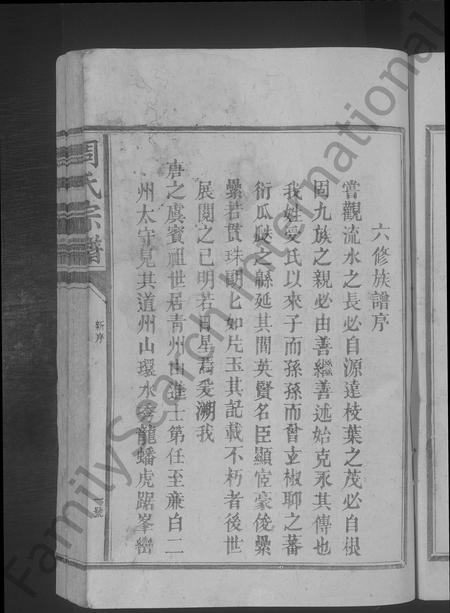 六修族譜序
嘗觀流水之長必自源達枝葉之茂必自根
固九族之親必由善繼善述始克永其傳也
我姓受氏以來子而孫孫而曾玄椒聊之蕃
衍瓜瓞之緜延其間英賢名臣顯宦豪俊纍
纍若貫珠融匕如片玉其記載不朽者後世
展閱之已明若日星焉爰溯我
唐之虞賓祖世居青州由進士第任至亷白二
州太守見其道州山環水秀龍蟠虎踞峯巒
周氏宗譜
新序
號
FamilySearch International